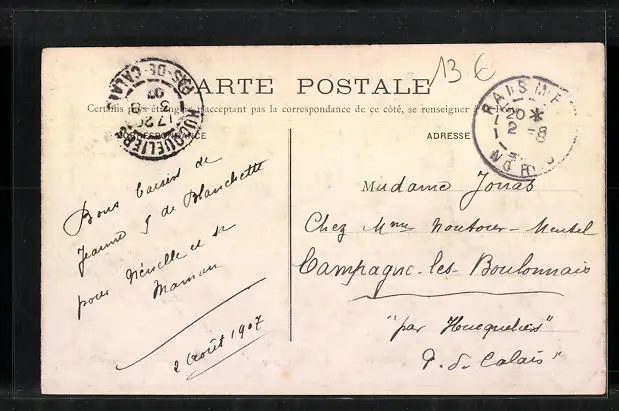 13 €
CARTE POSTALE
Certains pays étrangers n'acceptant pas la correspondance de ce côté, se renseigner à la Poste
CORRESPONDANCE
ADRESSE
HUCQUELIERS
PAS-DE-CALAIS
17 20
3 8
07
RAISMES
20 *
2 - 8
NORD
Bons baisers de
Jeanne & de Blanchette
pour Nénelle et sa
Maman
2 Août 1907
Madame Jonas
Chez Mme
Campagne-les-Boulonnais
"par Hucqueliers"
P. de Calais"